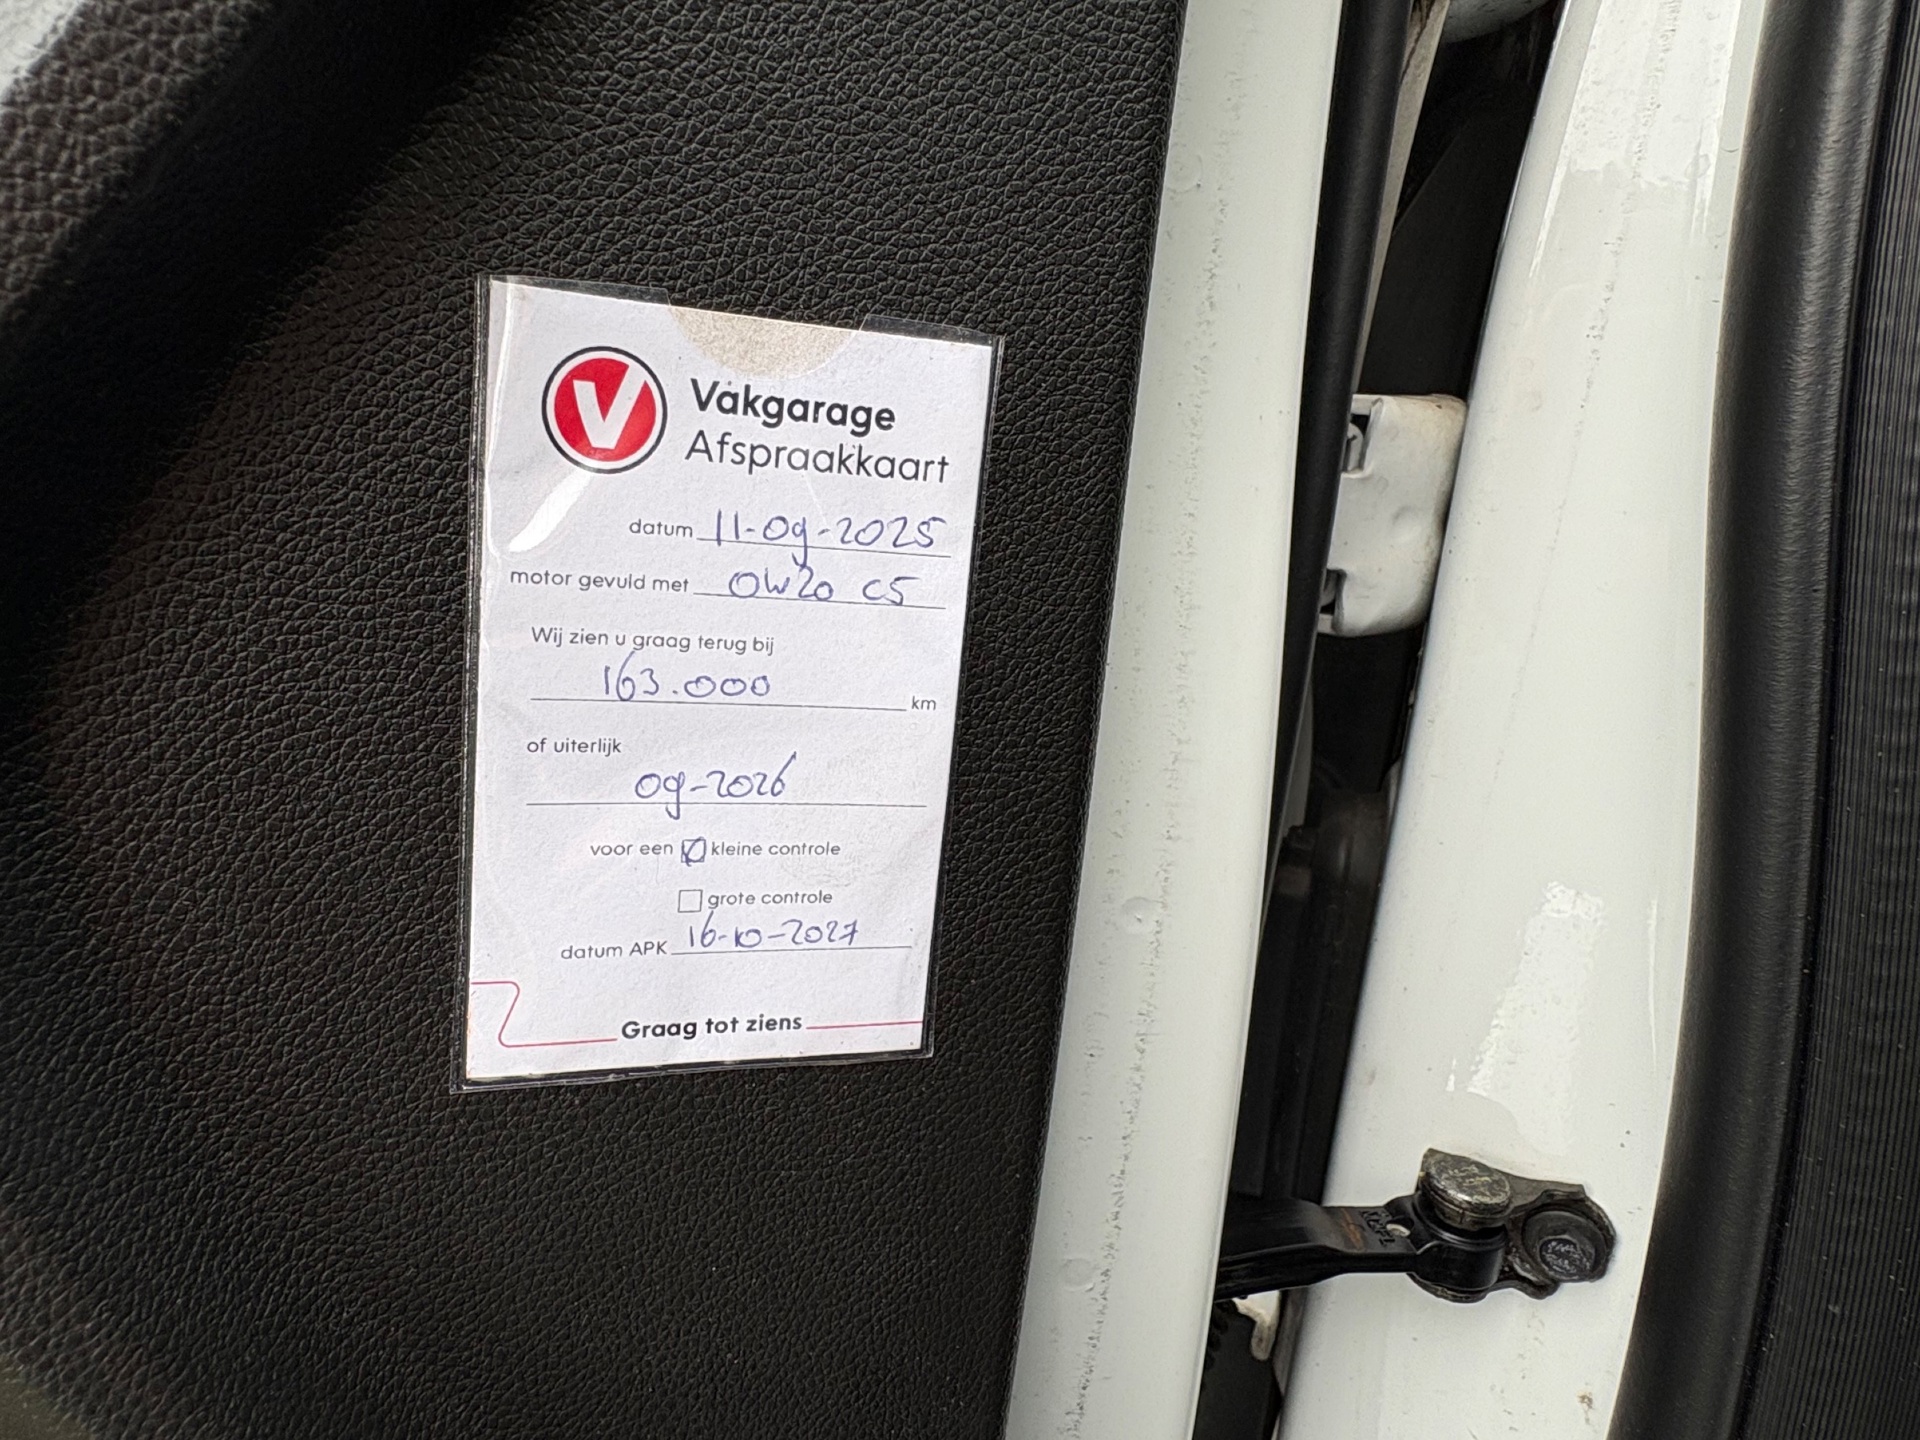 V
Vakgarage
Afspraakkaart
datum 11-09-2025
motor gevuld met 0W20 C5
Wij zien u graag terug bij
163.000 km
of uiterlijk
09-2026
voor een kleine controle
grote controle
datum APK 16-10-2027
Graag tot ziens